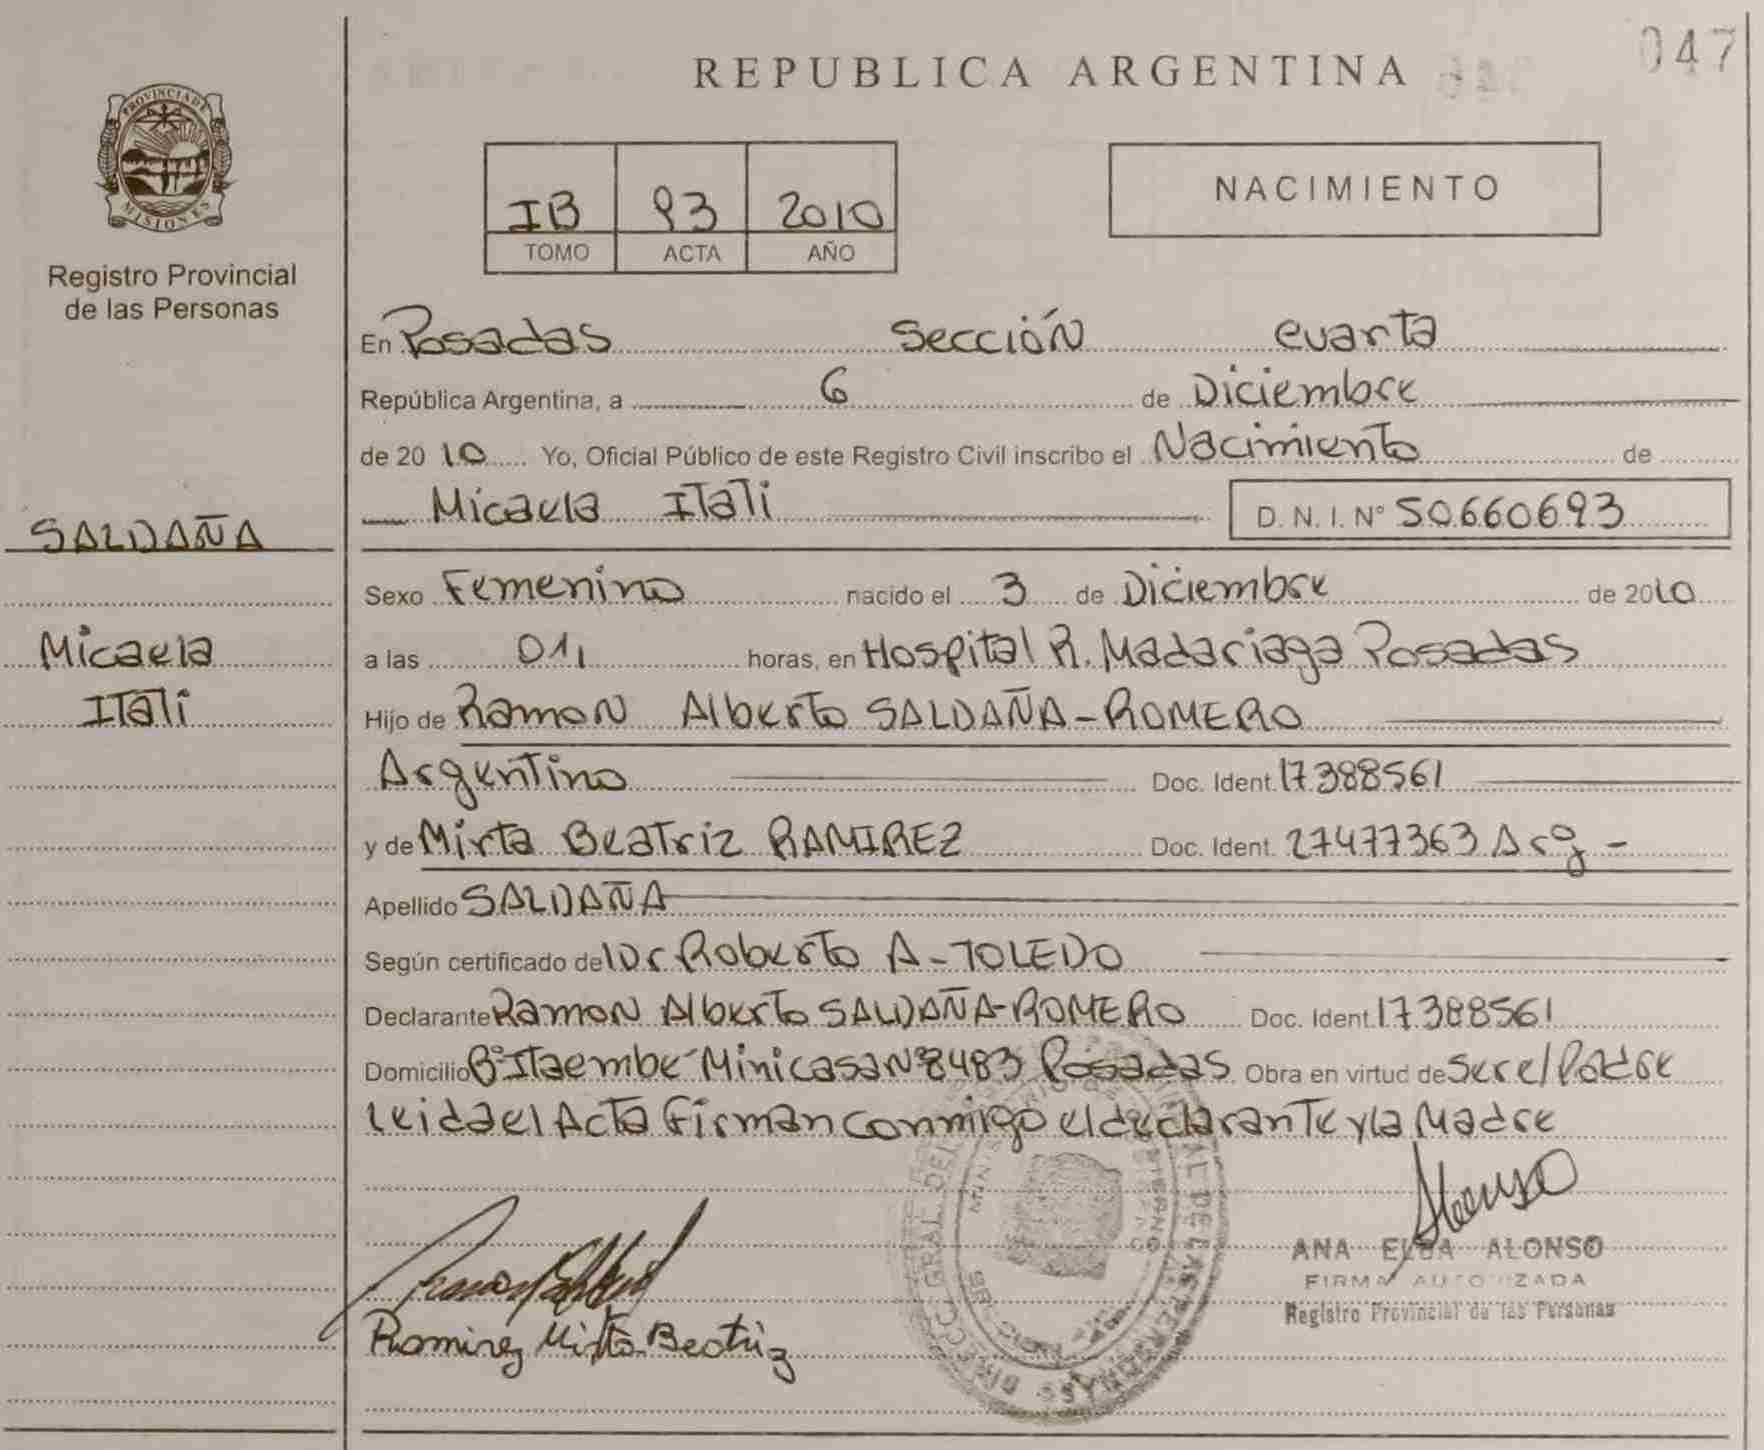 047
REPUBLICA ARGENTINA
PROVINCIA DE
MISIONES
Registro Provincial
de las Personas
IB 93 2010
TOMO ACTA AÑO
NACIMIENTO
En Posadas Sección cuarta
República Argentina, a 6 de Diciembre
de 2010 Yo, Oficial Público de este Registro Civil inscribo el Nacimiento de
Micaela Itali D. N. I. N° 50660693
SALDAÑA
Micaela
Itali
Sexo Femenino nacido el 3 de Diciembre de 2010
a las 01, horas, en Hospital R. Madariaga Posadas
Hijo de Ramon Alberto SALDAÑA-ROMERO
Argentino Doc. Ident. 17388561
y de Mirta Beatriz RAMIREZ Doc. Ident. 27477363 Arg -
Apellido SALDAÑA
Según certificado del Dr Roberto A-TOLEDO
Declarante Ramon Alberto SALDAÑA-ROMERO Doc. Ident. 17388561
Domicilio B° Itaembe Mini casa N° 8483 Posadas Obra en virtud de ser el Padre
leida el Acta Firman conmigo el declarante y la Madre
Alonso
ANA ELBA ALONSO
FIRMA AUTORIZADA
Registro Provincial de las Personas
Ramirez Mirta Beatriz
DIRECC. GRAL. DEL DE LAS PERSONAS